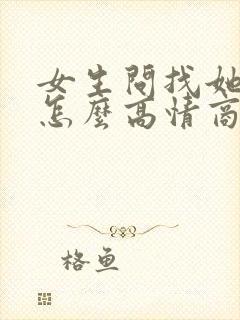 女生問找她
怎麼高情商
格魚